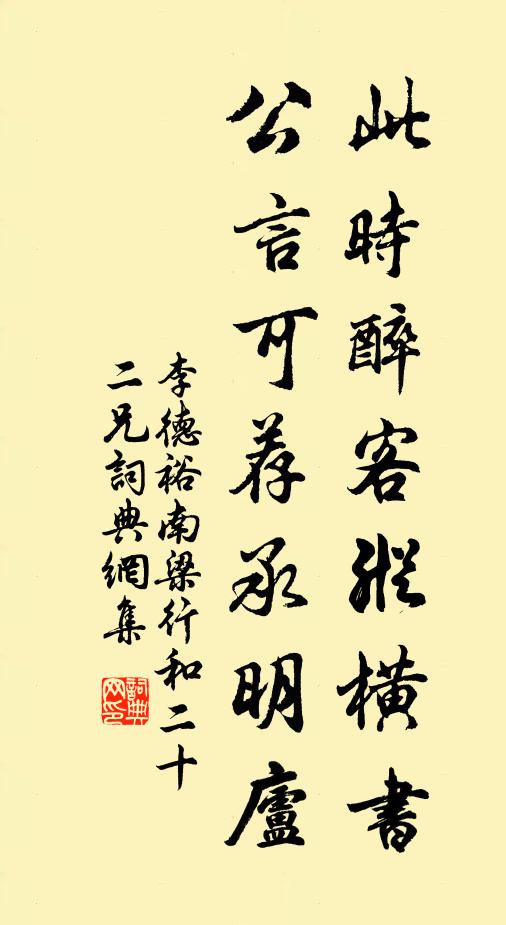 此時醉客縱橫書
公言可荐承明廬
李德裕南梁行和二十
二兄詞典網集
詞典网印